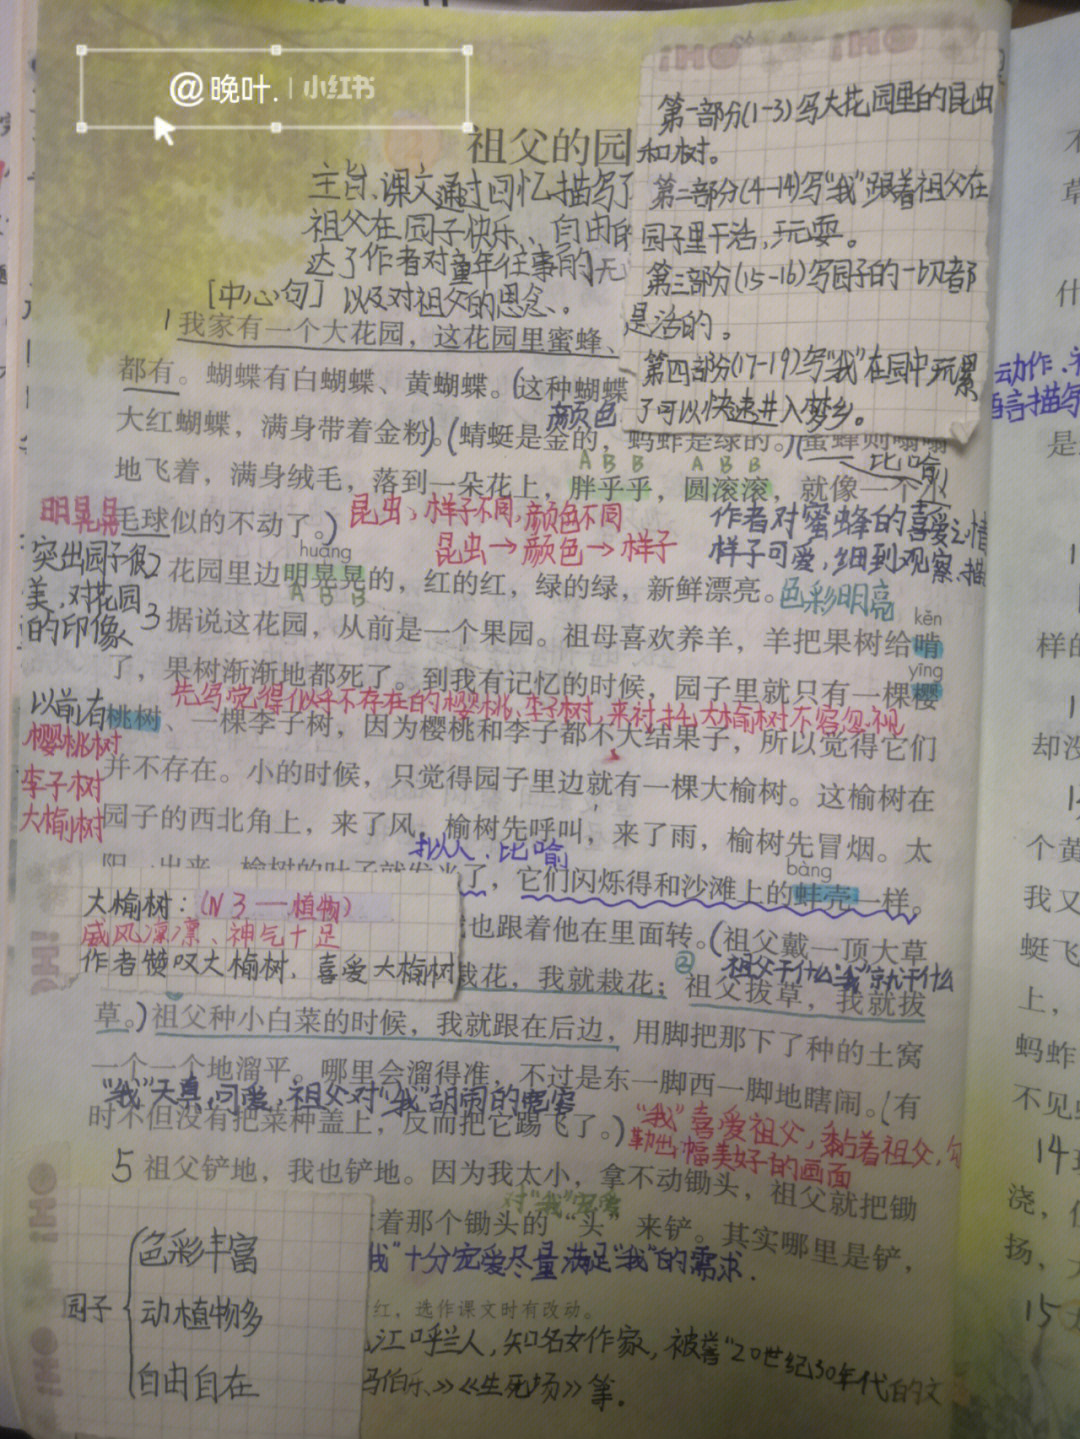 @晚叶. | 小红书
祖父的园
主旨、课文通过回忆描写了
祖父在园子快乐、自由的
达了作者对童年往事的无
[中心句] 以及对祖父的思念、。
第一部分(1-3)写大花园里的昆虫
和树。
第二部分(4-14)写"我"跟着祖父在
园子里干活,玩耍。
第三部分(15-16)写园子的一切都
是活的。
第四部分(17-19)写"我"在园中玩累
了可以快速进入梦乡。
1 我家有一个大花园，这花园里蜜蜂、
都有。蝴蝶有白蝴蝶、黄蝴蝶。(这种蝴蝶
颜色
大红蝴蝶，满身带着金粉)。(蜻蜓是金的，蚂蚱是绿的。)(蜜蜂则嗡嗡
比喻
ABB ABB
地飞着，满身绒毛，落到一朵花上，胖乎乎，圆滚滚，就像一个小
明晃晃
毛球似的不动了。)
昆虫、样子不同,颜色不同
昆虫→颜色→样子
作者对蜜蜂的喜爱之情
样子可爱,细到观察,描
突出园子很
美,对花园
的印像
huǎng
2 花园里边明晃晃的，红的红，绿的绿，新鲜漂亮。
ABB
色彩明亮
kěn
3 据说这花园，从前是一个果园。祖母喜欢养羊，羊把果树给啃
yīng
了，果树渐渐地都死了。到我有记忆的时候，园子里就只有一棵樱
先写觉得似乎不存在的樱桃、李子树,来衬托大榆树不容忽视
以前有
樱桃树
李子树
大榆树
桃树、一棵李子树，因为樱桃和李子都不大结果子，所以觉得它们
并不存在。小的时候，只觉得园子里边就有一棵大榆树。这榆树在
园子的西北角上，来了风，榆树先呼叫，来了雨，榆树先冒烟。太
拟人、比喻
bàng
阳一出来，榆树的叶子就发光了，它们闪烁得和沙滩上的蚌壳一样。
大榆树:(N3—植物)
威风凛凛、神气十足
作者赞叹大榆树,喜爱大榆树
也跟着他在里面转。(祖父戴一顶大草
② 祖父干什么"我"就干什么
栽花，我就栽花；祖父拔草，我就拔
草。)祖父种小白菜的时候，我就跟在后边，用脚把那下了种的土窝
一个一个地溜平。哪里会溜得准，不过是东一脚西一脚地瞎闹。(有
"我"天真,可爱,祖父对"我"胡闹的宽容
时不但没有把菜种盖上，反而把它踢飞了。)
"我"喜爱祖父,黏着祖父,勾
勒出一幅美好的画面
5 祖父铲地，我也铲地。因为我太小，拿不动锄头，祖父就把锄
对"我"宠爱
着那个锄头的"头"来铲。其实哪里是铲，
我"十分宠爱尽量满足"我"的需求.
园子
色彩丰富
动植物多
自由自在
红，选作课文时有改动。
江呼兰人,知名女作家,被誉"20世纪30年代的文
马伯乐》《生死场》等.
动作、
语言描写
是
样的
却没
个黄
我又
蜓飞
上，
蚂蚱
不见
14
浇，
扬，
15